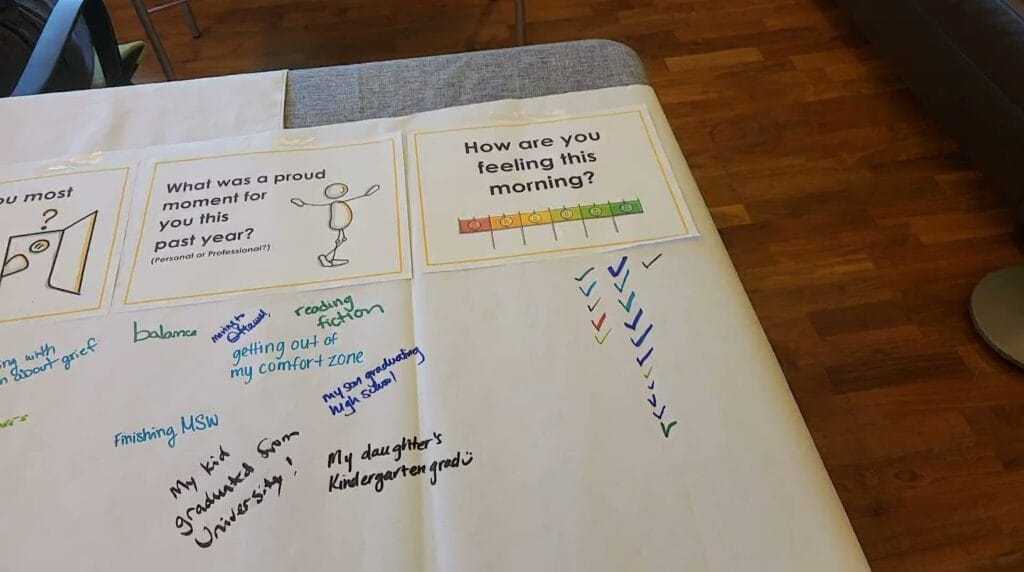 ou most
?
What was a proud
moment for
you this
past year?
(Personal or Professional?)
How are you
feeling this
morning?
ng with
about grief
balance
moving to
Ottawa!
reading
fiction
getting out of
my comfort zone
my son graduating
high school
Finishing MSW
My kid
graduated from
University!
My daughter's
Kindergarten grad